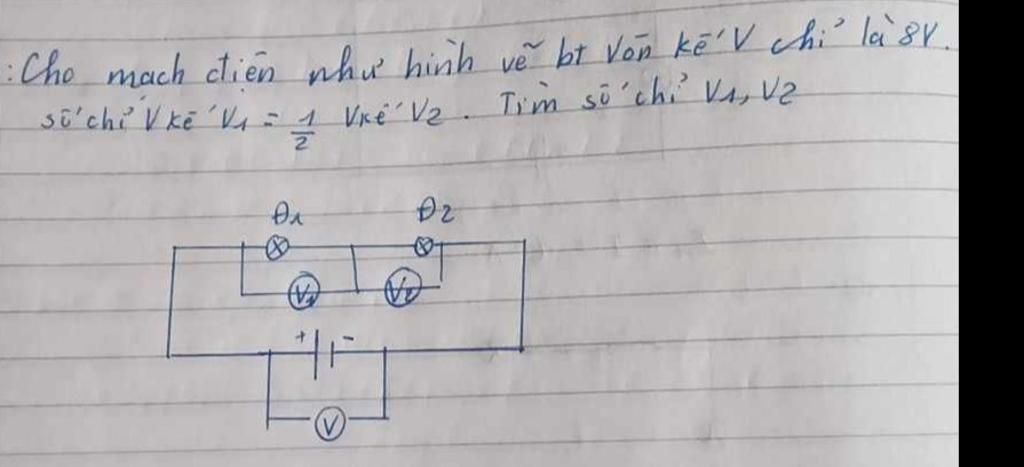 : Cho mach điện như hình vẽ bt Vôn kế V chỉ là 8V.
số chỉ V kế V1 = 1/2 Vkế V2. Tìm số chỉ V1, V2
Đ1 Đ2
V1 V2
+ -
V